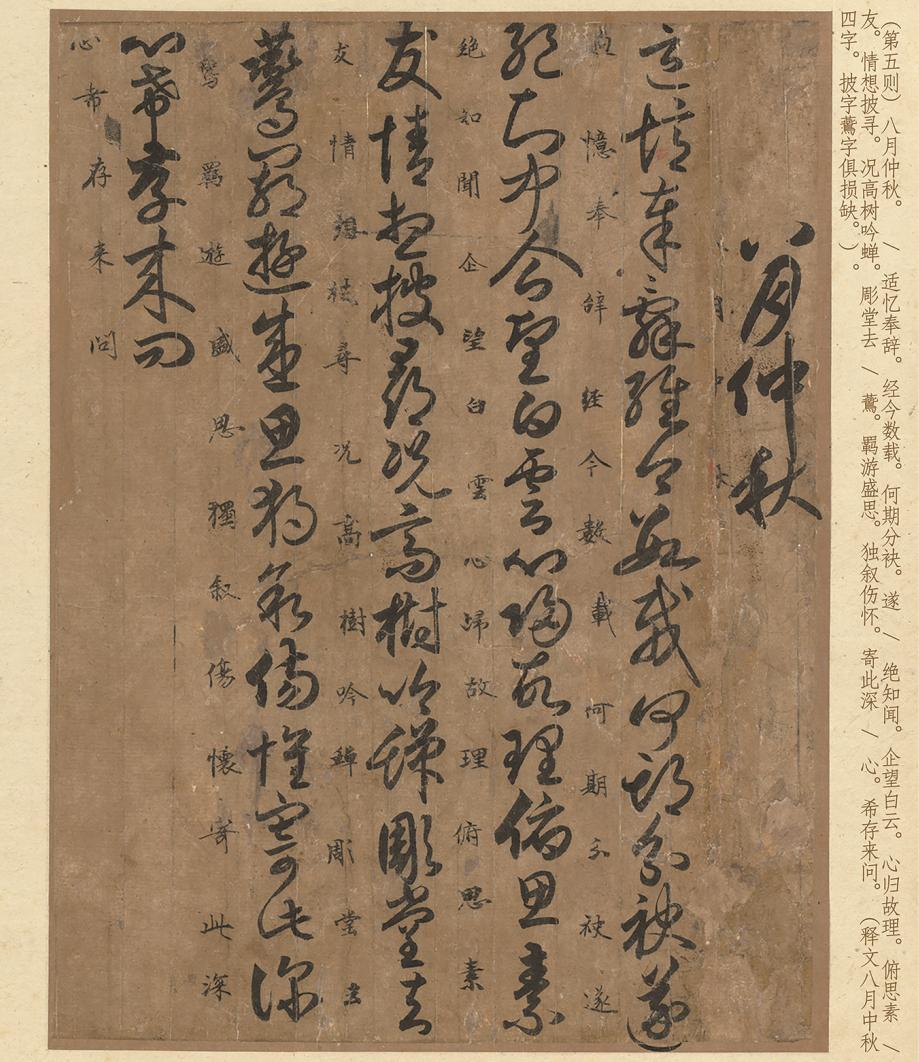 （第五则） 八月仲秋。 / 适忆奉辞。经今数载。何期分袂。遂 / 绝知闻。企望白云。心归故理。俯思素 /
友。情想披寻。况高树吟蝉。彫堂去 / 鷰。羁游盛思。独叙伤怀。寄此深 / 心。希存来问。（释文八月中秋
四字。披字鷰字俱损缺。）。
八月仲秋
月中
適憶奉辭經今數載何期分袂遂
憶奉辞经今數載何期分袂遂
絶知聞企望白雲心歸故理俯思素
绝知聞企望白雲心歸故理俯思素
友情想披尋況高樹吟蟬彫堂去
友情想尋况高樹吟蟬彫堂去
鷰羈遊盛思獨叙傷懷寄此深
羈遊盛思獨叙傷懷寄此深
心希存来問
心希存来問